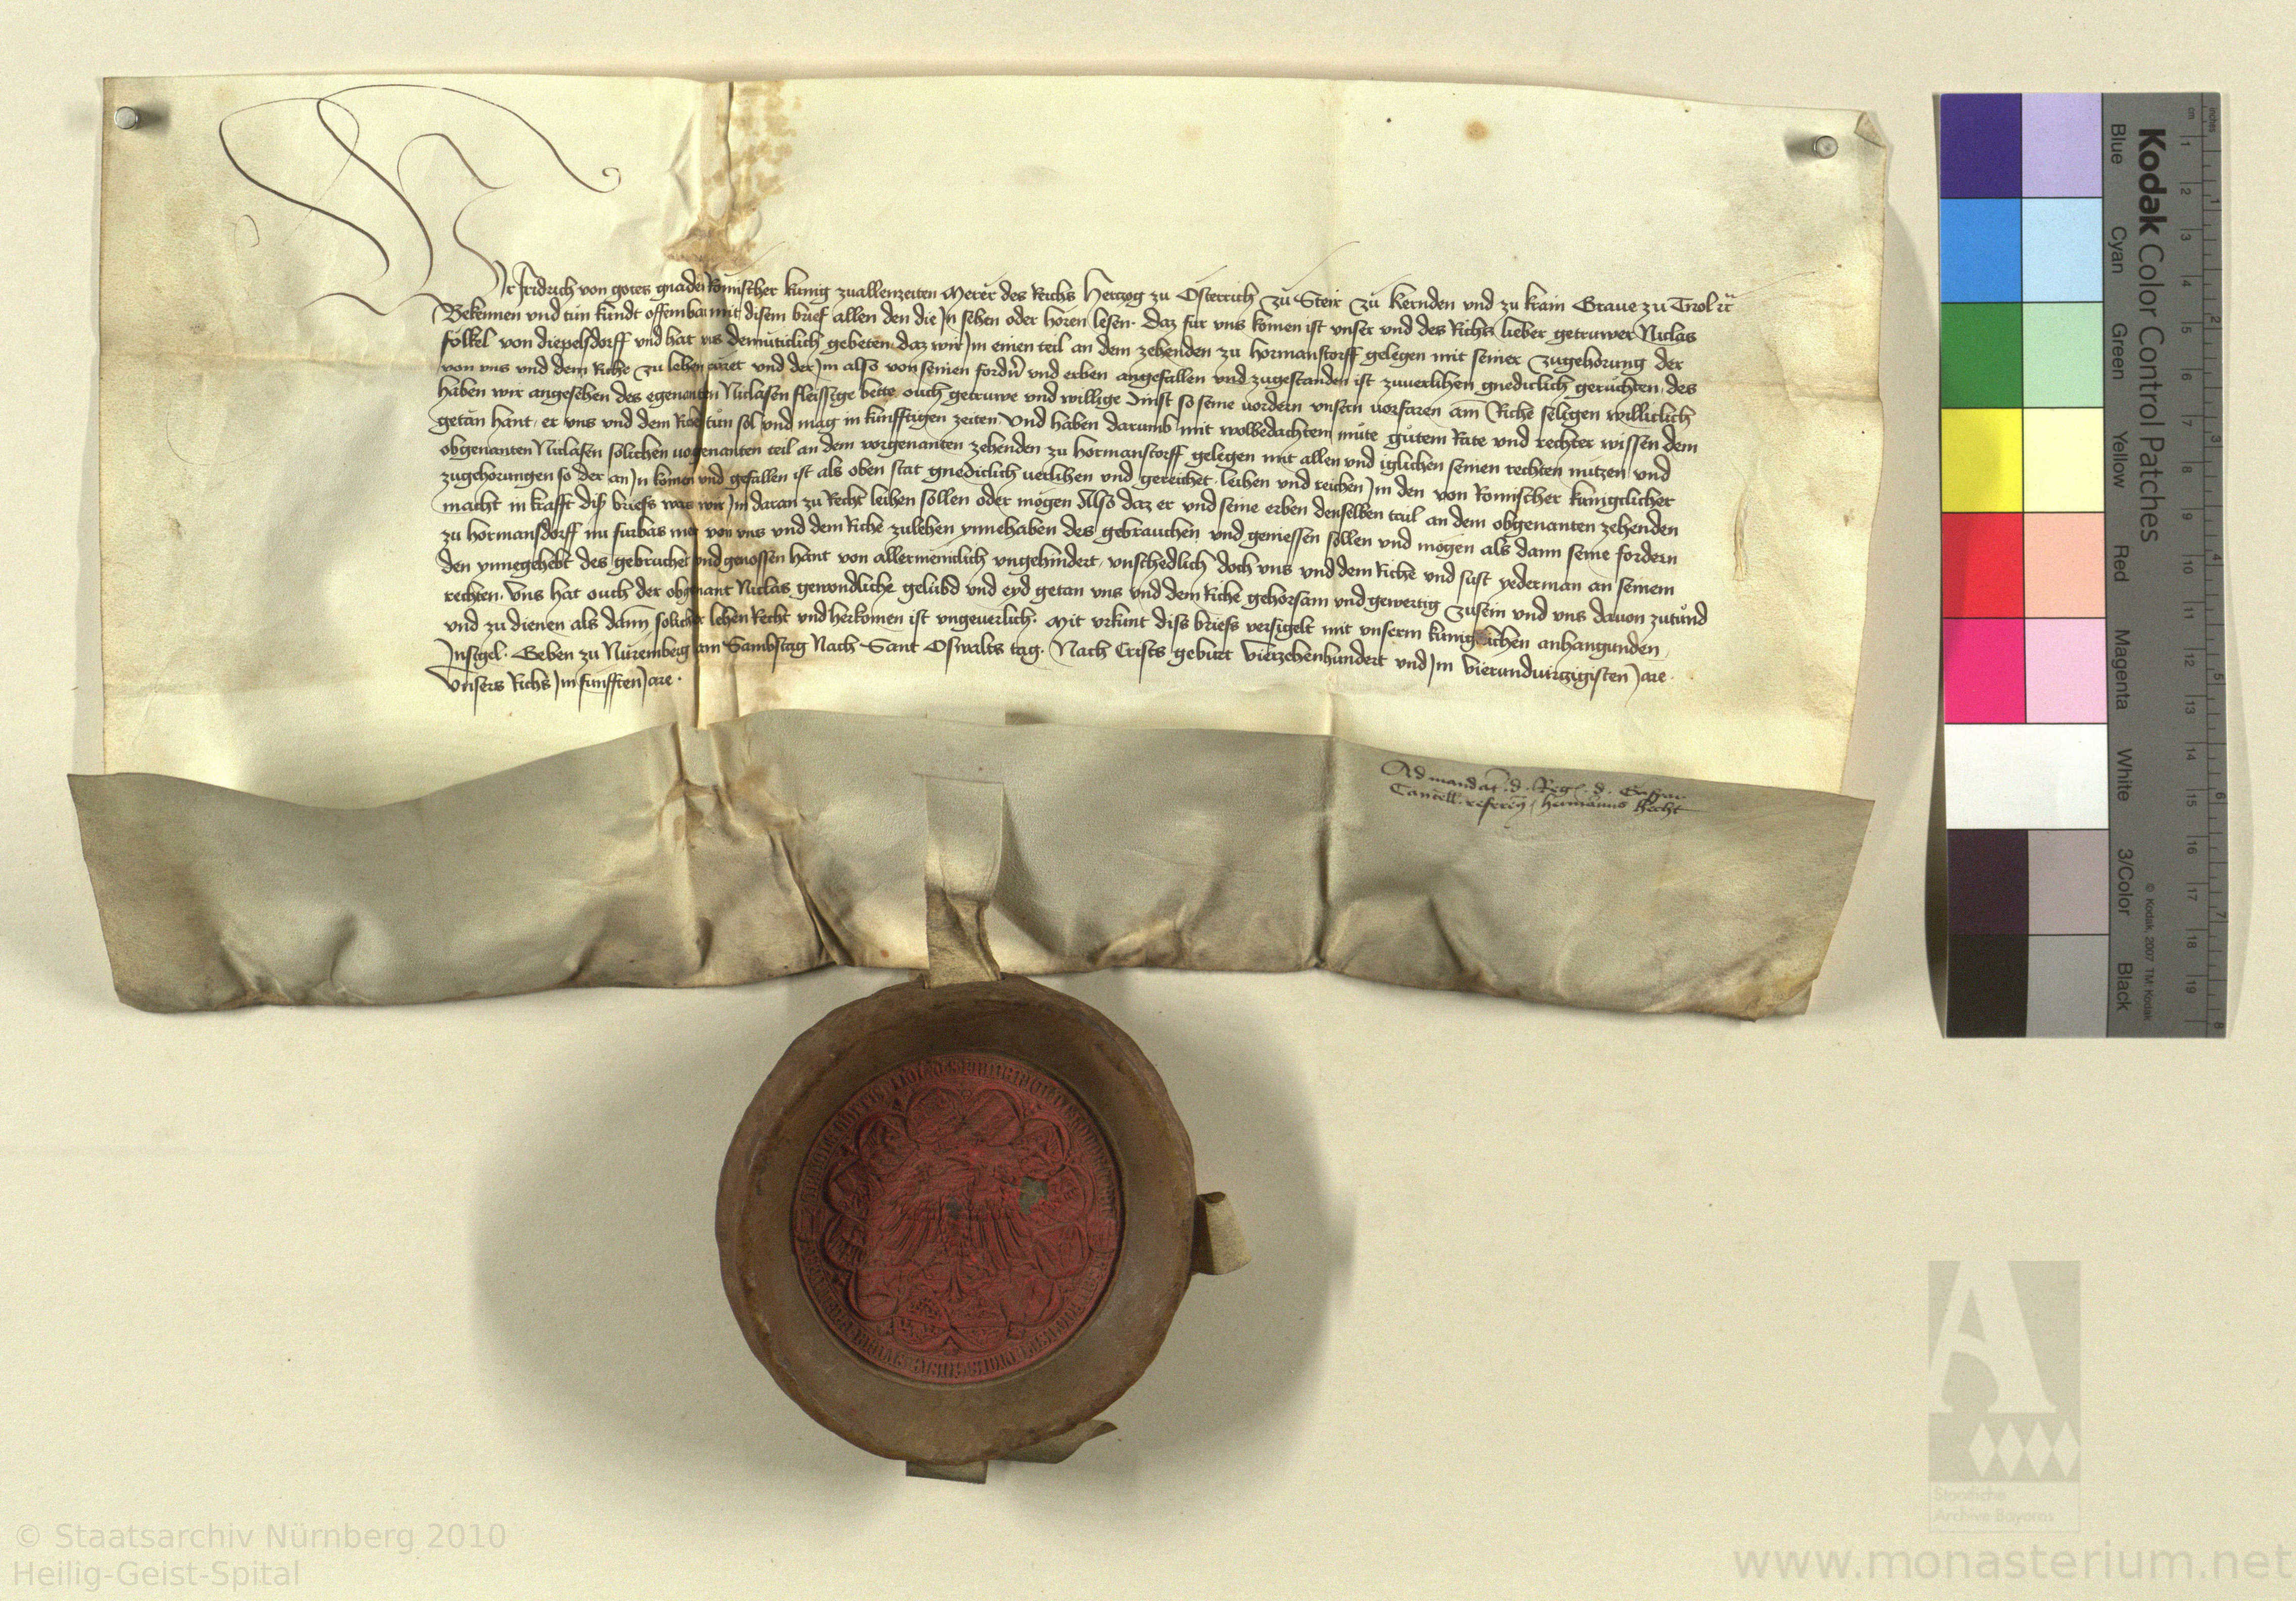 Wir Fridrich von gotes gnaden Romischer kunig zuallenzeiten Merer des Richs Hertzog zu Österrich zu Steir zu kernden und zu krain Graue zu Tirol etc
Bekennen und tun kundt offembar mit disem brief allen den die Jn sehen oder horen lesen. Daz fur uns komen ist unser und des Richs lieber getruwer Niclas
folkel von diepelsdorff und hat uns demuticlich gebeten daz wir Jm einen teil an dem zehenden zu hormanstorff gelegen mit seiner zugehorung der
von uns und dem Riche zu lehen ruret und der Jm also von seinen fordern und erben angefallen und zugestanden ist zuuerlihen gnediclich geruchten, des
haben wir angesehen des egenanten Niclasen fleissige bette ouch getruwe und willige dinst so seine uordern unsern uorfaren am Riche seligen williclich
getan hant, er uns und dem Riche tun sol und mag in kunfftigen zeiten. Und haben darumb mit wolbedachtem mute gutem Rate und rechter wissen dem
obgenanten Niclasen solichen uorgenanten teil an dem vorgenanten zehenden zu hormanstorff gelegen mit allen und iglichen seinen rechten nutzen und
zugehorungen so der an Jn komen und gefallen ist als oben stat gnediclich uerlihen und gereichet. leihen und reichen Jm den von Romischer kuniglicher
macht in krafft diß briefs was wir Jm daran zu Recht leihen sollen oder mogen Also daz er und seine erben denselben teil an dem obgenanten zehenden
zu hormansdorff nu furbas mer von uns und dem Riche zulehen ynnehaben des gebrauchen und geniessen sollen und mogen als dann seine fordern
den ynnegehebt des gebruchet und genossen hant von allermeniclich ungehindert, unschedlich doch uns und dem Riche und sust yederman an seinem
rechten. Uns hat ouch der obgenant Niclas gewondliche gelubd und eyd getan uns und dem Riche gehorsam und gewertig zusein und uns dauon zutund
und zu dienen als dann solicher lehen Recht und herkomen ist ungeuerlich. Mit urkunt diss briefs versigelt mit unserm kuniglichen anhangunden
Jnsigel. Geben zu Nuremberg am Sambstag Nach Sant Oswalts tag. Nach Crists geburt vierzehenhundert und Jm vierundvirtzigisten Jare.
Unsers Richs Jm funfften Jare.
Ad mandatum d. Regis d. Caspar
Cancell. referen. hermannus hecht
Kodak Color Control Patches
Blue Cyan Green Yellow Red Magenta White 3/Color Black
© Kodak, 2007 TM: Kodak
inches 1 2 3 4 5 6 7 8
cm 1 2 3 4 5 6 7 8 9 10 11 12 13 14 15 16 17 18 19
Staatliche
Archive Bayerns
© Staatsarchiv Nürnberg 2010
Heilig-Geist-Spital
www.monasterium.net